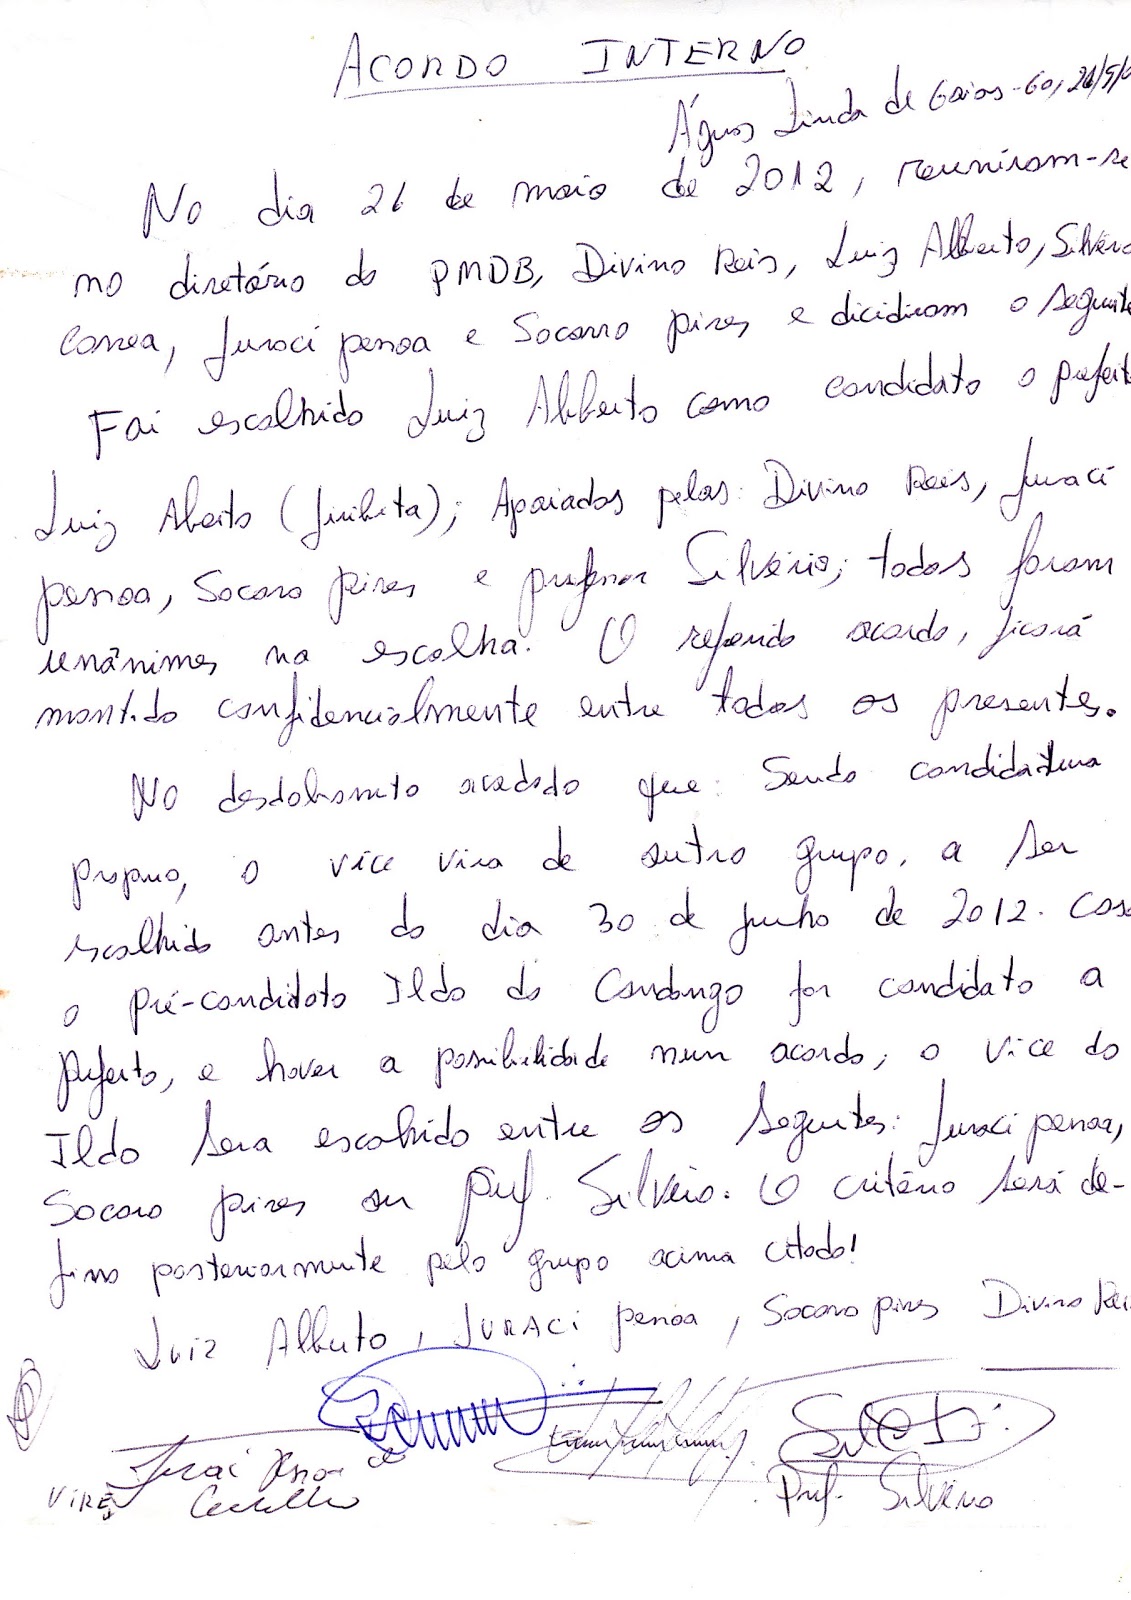 ACORDO INTERNO
Águas Linda de Goias-GO, 26/5/
No dia 26 de maio de 2012, reuniram-se
no diretório do PMDB, Divino Reis, Luiz Alberto, Silvério
Correa, Juraci pessoa e Socorro pires e dicidiram o seguinte
Foi escolhido Luiz Alberto como candidato a prefeito
Luiz Alberto (Jiribita); Apoiados pelos: Divino Reis, Juraci
pessoa, Socoro pires e professor Silvério; todos foram
unânimes na escolha. O referido acordo, ficará
mantido confidencialmente entre todos os presentes.
No desdobramento acordado que: Sendo candidatura
propria, o vice vira de outro grupo, a ser
escolhido antes do dia 30 de Junho de 2012. Caso
o pré-candidato Ildo do Candango for candidato a
prefeito, e hover a possibilidade num acordo, o vice do
Ildo sera escolhido entre os seguintes: Juraci pessoa,
Socoro pires ou Prof. Silvério. O critério será de-
fino posteriormente pelo grupo acima citado!
Luiz Alberto, JURACi pessoa, Socoro pires Divino Reis
Juraci Pessoa de
VIRE
Prof. Silvério